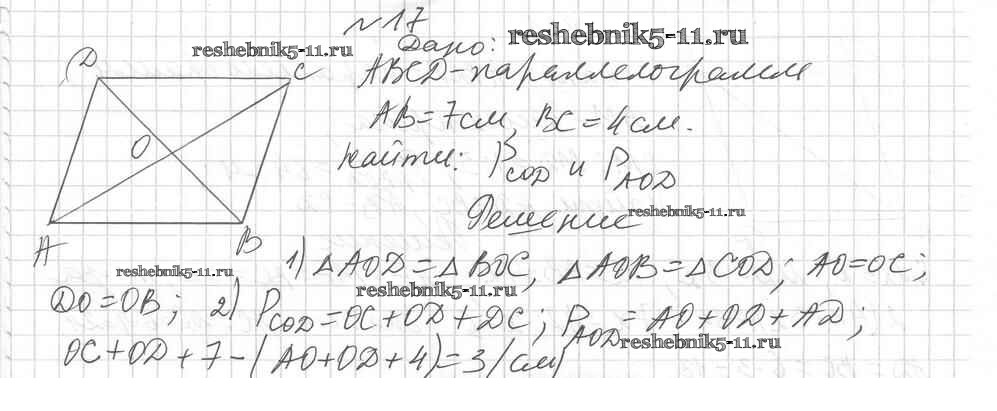 №17
reshebnik5-11.ru
Дано:
reshebnik5-11.ru
ABCD-параллелограмм
AB=7см, BC=4см.
Найти: P_COD и P_AOD
Решение
reshebnik5-11.ru
D
C
O
A
B
reshebnik5-11.ru
1) △AOD=△BOC, △AOB=△COD; AO=OC;
reshebnik5-11.ru
DO=OB; 2) P_COD=OC+OD+DC; P_AOD=AO+OD+AD;
reshebnik5-11.ru
OC+OD+7-(AO+OD+4)=3(см)